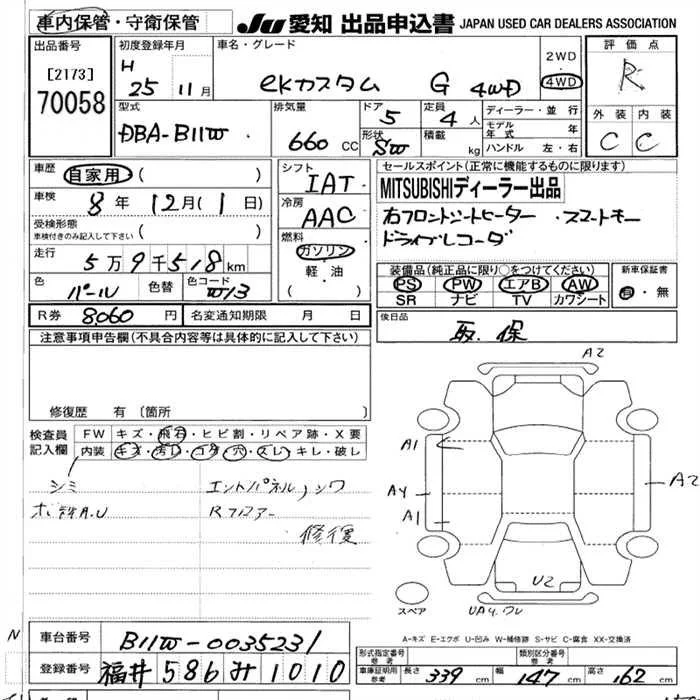 車内保管・守衛保管
JU 愛知 出品申込書 JAPAN USED CAR DEALERS ASSOCIATION
出品番号
[2173]
70058
初度登録年月
H 25 11月
車名・グレード
eKカスタム G 4WD
2WD
4WD
評価点
R
外装 内装
C C
型式
DBA-B11W
排気量
660 CC
ドア
5
形状
SW
定員
4人
積載
kg
ディーラー・並行
モデル年式 年
ハンドル 左・右
車歴
自家用 ( )
車検
8年 12月 ( 1日)
受検形態
車検付きのみ記入して下さい ( )
走行
5万9千518km
色
パール
色替
色コード
W13
シフト
IAT
冷房
AAC
燃料
ガソリン
軽・油
( )
セールスポイント(正常に機能するものに限ります)
MITSUBISHIディーラー出品
右フロントシートヒーター ・スマートキー
ドライブレコーダ
装備品(純正品に限り○をつけてください)
PS PW エアB AW
SR ナビ TV カワシート
新車保証書
有・無
R券 8060円
名変通知期限 月 日
後日品
取.保
注意事項申告欄(不具合内容等は具体的に記入して下さい)
修復歴 有 〔箇所
検査員記入欄
FW キズ・飛石・ヒビ割・リペア跡・X要
内装 キズ・汚レ・コゲ・穴・スレ・キレ・破レ
シミ
エンドパネル,シワ
Rフロアー
修復
A2
A1
A4
A1
A2
U2
スペア
A-キズ E-エクボ U-凹み W-補修跡 S-サビ C-腐食 XX-交換済
N
車台番号
B11W-0035231
登録番号
福井 586 み 1010
形式指定番号
参考
類別区分番号
参考
車庫証明用
参考
長さ 339 cm
幅 147 cm
高さ 162 cm